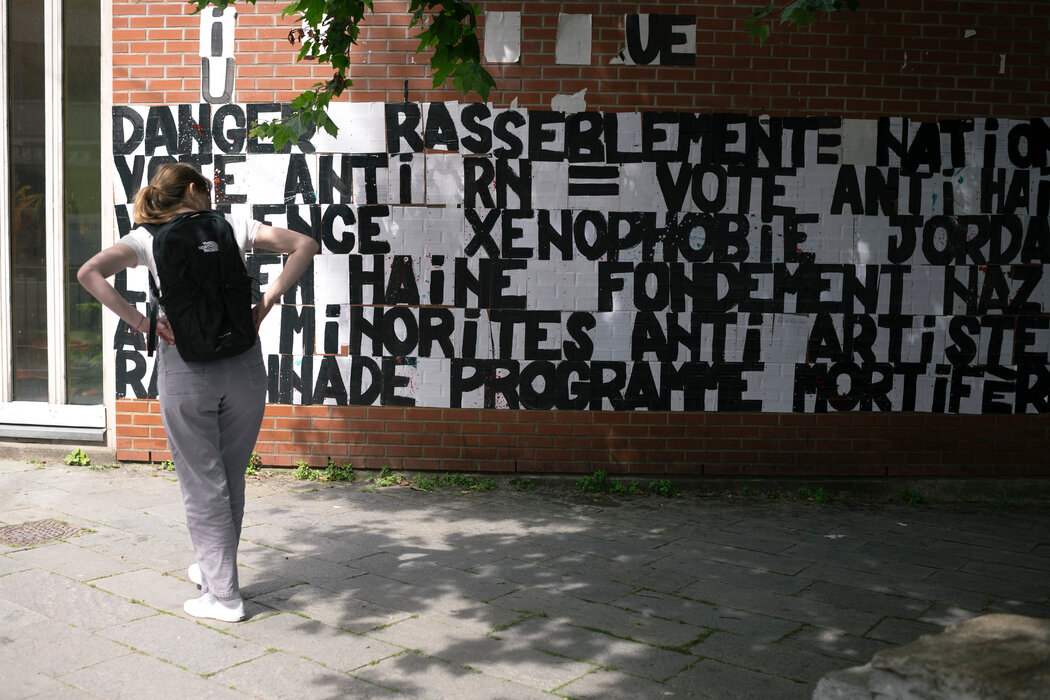 i UE
U
DANGER RASSEBLEMENTE NATiON
VOTE ANTi RN = VOTE ANTi HAi
XENOPHOBiE JORDA
HAiNE FONDEMENT NAZ
MiNORiTES ANTi ARTiSTE
PROGRAMME MORTiFÈR
THE NORTH FACE